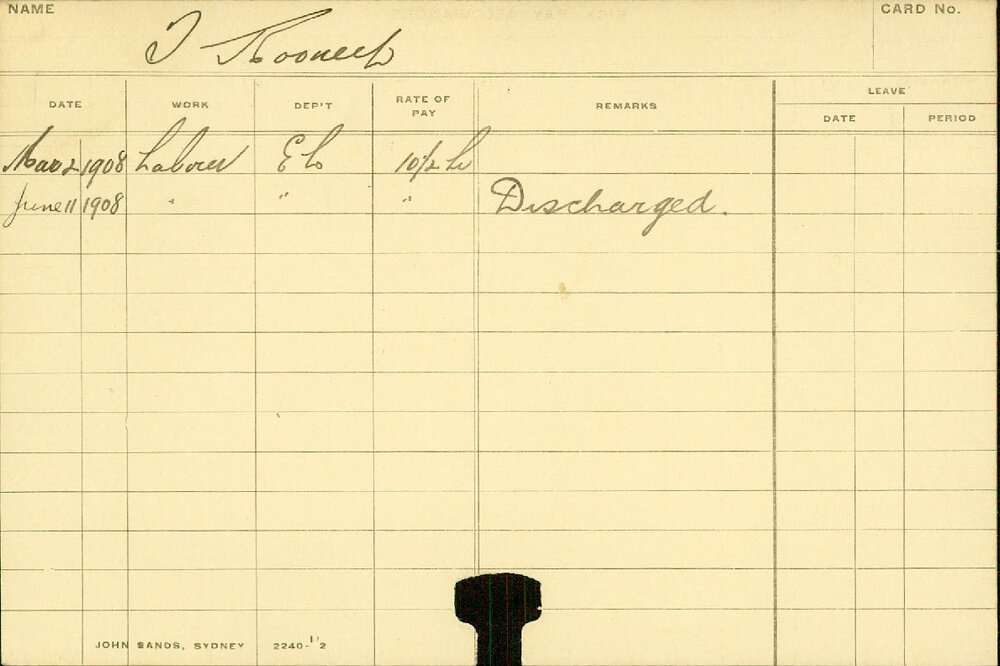 NAME
CARD No.
DATE WORK DEP'T RATE OF PAY REMARKS LEAVE
DATE PERIOD
Mar 2 1908 Labourer E L 10½
June 11 1908 " " " Discharged.
JOHN SANDS, SYDNEY 2240-1'2